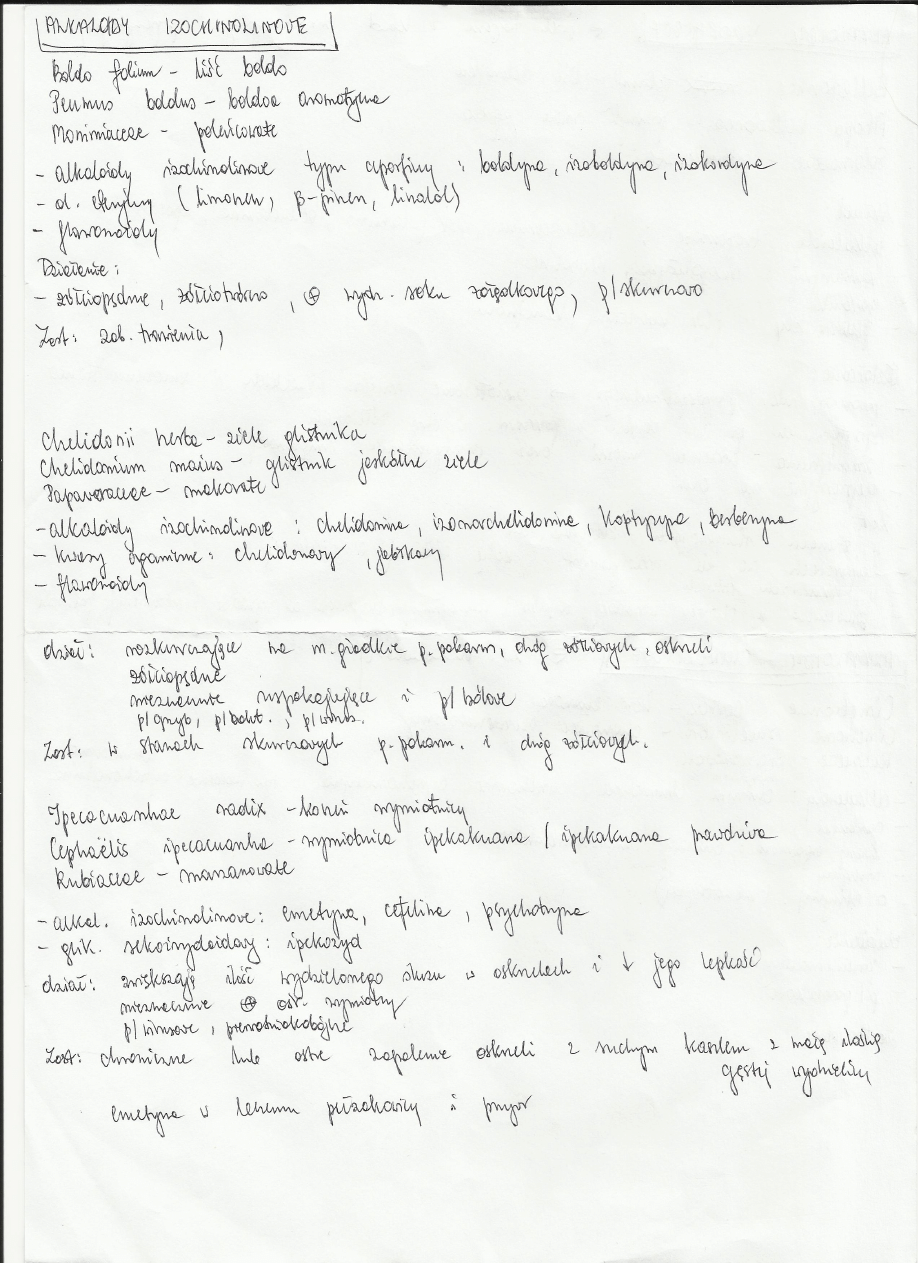 ALKALOIDY IZOCHINOLINOWE
Boldo folium - liść boldo
Peumus boldus - boldoa aromatyczna
Monimiaceae - poleńcowate
- alkaloidy izochinolinowe typu aporfiny : boldyna, izoboldyna, izokordyna
- ol. eteryczny (limonen, β-pinen, linalol)
- flawonoidy
Działanie:
- żółciopędne, żółciotwórcze, ⊕ wydz. soku żołądkowego, p/skurczowo
Zast: zab. trawienia,
Chelidonii herba - ziele glistnika
Chelidonium maius - glistnik jaskółcze ziele
Papaveraceae - makowate
- alkaloidy izochinolinowe : chelidonina, izonorchelidonina, koptyzyna, berberyna
- kwasy organiczne: chelidonowy, jabłkowy
- flawonoidy
dział: rozkurczające na m. gładkie p. pokarm, dróg żółciowych, oskrzeli
żółciopędne
nieznacznie uspokajające i p/bólowe
p/grzyb, p/bakt. , p/wirus.
Zast: w stanach skurczowych p. pokarm. i dróg żółciowych.
Ipecacuanhae radix - korzeń wymiotnicy
Cephaëlis ipecacuanha - wymiotnica ipekakuana / ipekakuana prawdziwa
Rubiaceae - marzanowate
- alkal. izochinolinowe: emetyna, cefelina, psychotryna
- glik. sekoirydoidowy: ipekozyd
dział: zwiększają ilość wydzielonego śluzu w oskrzelach i ↓ jego lepkość
nieznacznie ⊕ ośr. wymiotny
p/wirusowe, pierwotniakobójcze
Zast: chroniczne lub ostre zapalenie oskrzeli z suchym kaszlem z małą ilością
gęstej wydzieliny
emetyna w leczeniu pełzakowicy i